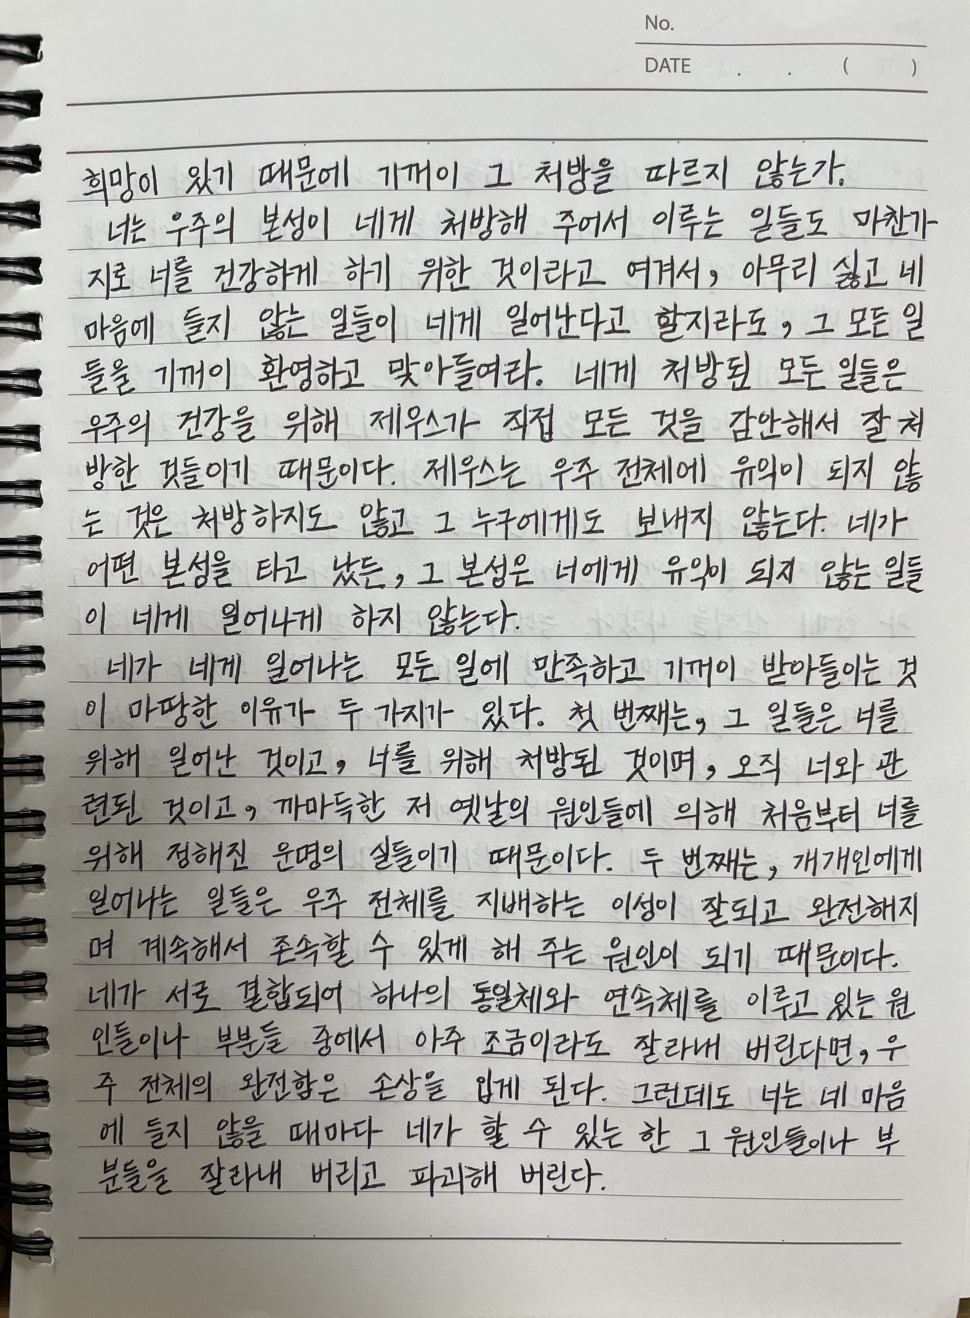 No.
DATE . . ( )
희망이 있기 때문에 기꺼이 그 처방을 따르지 않는가.
너는 우주의 본성이 네게 처방해 주어서 이루는 일들도 마찬가
지로 너를 건강하게 하기 위한 것이라고 여겨서, 아무리 싫고 네
마음에 들지 않는 일들이 네게 일어난다고 할지라도, 그 모든 일
들을 기꺼이 환영하고 맞아들여라. 네게 처방된 모든 일들은
우주의 건강을 위해 제우스가 직접 모든 것을 감안해서 잘 처
방한 것들이기 때문이다. 제우스는 우주 전체에 유익이 되지 않
는 것은 처방하지도 않고 그 누구에게도 보내지 않는다. 네가
어떤 본성을 타고 났든, 그 본성은 너에게 유익이 되지 않는 일들
이 네게 일어나게 하지 않는다.
네가 네게 일어나는 모든 일에 만족하고 기꺼이 받아들이는 것
이 마땅한 이유가 두 가지가 있다. 첫 번째는, 그 일들은 너를
위해 일어난 것이고, 너를 위해 처방된 것이며, 오직 너와 관
련된 것이고, 까마득한 저 옛날의 원인들에 의해 처음부터 너를
위해 정해진 운명의 실들이기 때문이다. 두 번째는, 개개인에게
일어나는 일들은 우주 전체를 지배하는 이성이 잘되고 완전해지
며 계속해서 존속할 수 있게 해 주는 원인이 되기 때문이다.
네가 서로 결합되어 하나의 동일체와 연속체를 이루고 있는 원
인들이나 부분들 중에서 아주 조금이라도 잘라내 버린다면, 우
주 전체의 완전함은 손상을 입게 된다. 그런데도 너는 네 마음
에 들지 않을 때마다 네가 할 수 있는 한 그 원인들이나 부
분들을 잘라내 버리고 파괴해 버린다.